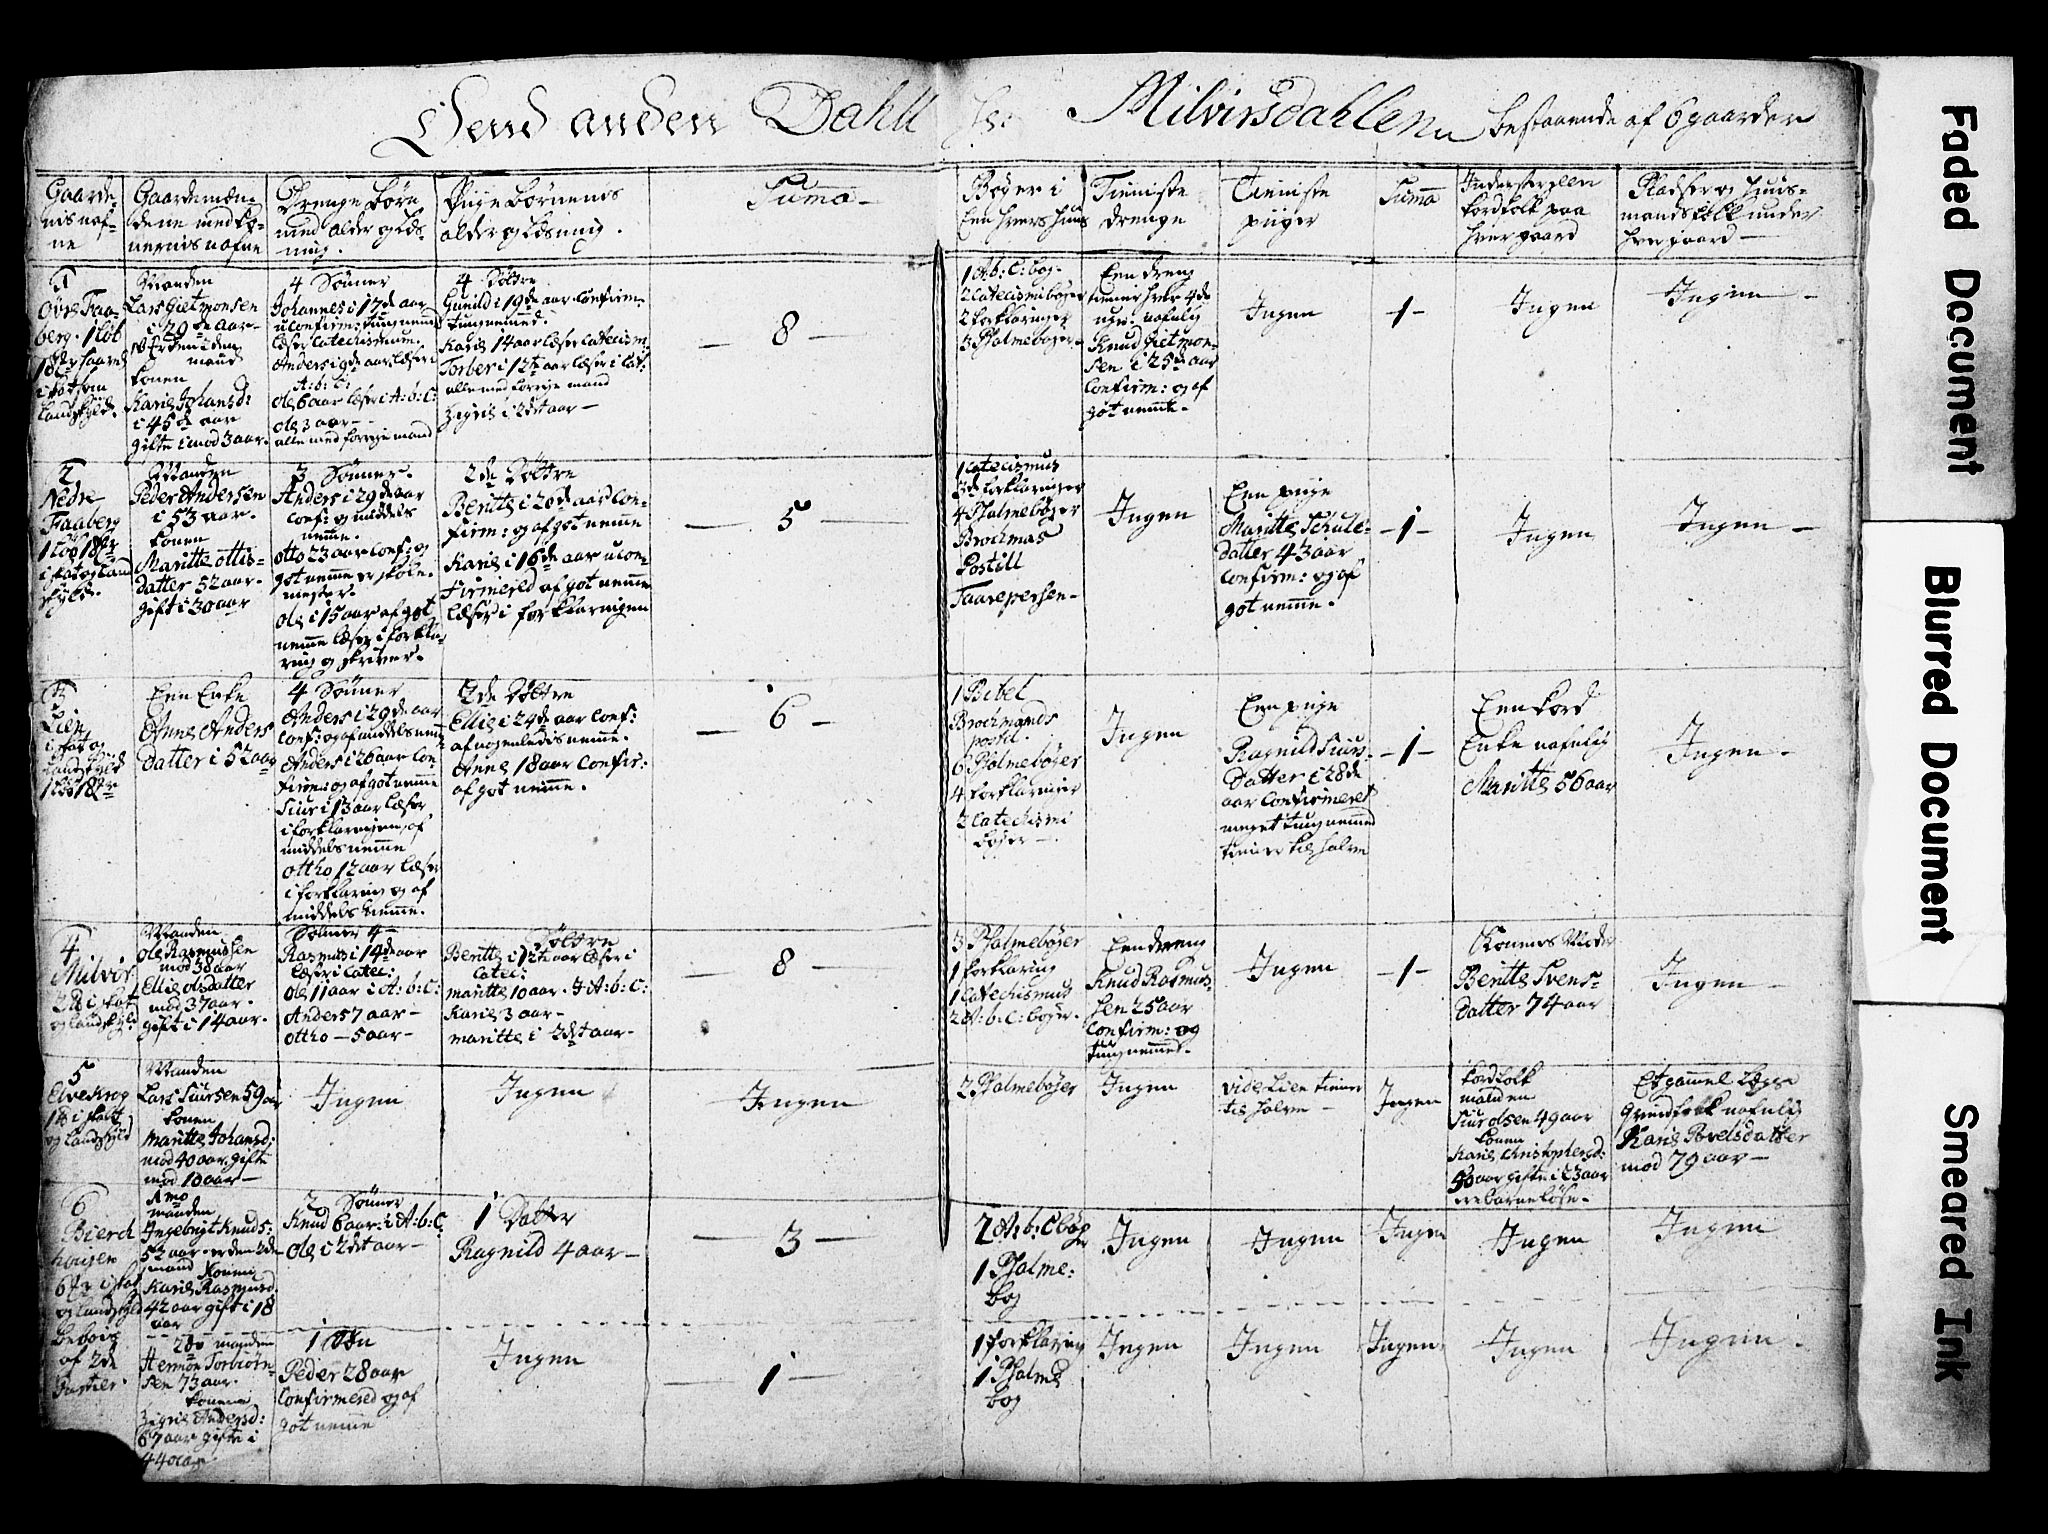 Dend anden Dahll hs: Milvirsdahlen bestaaende af 6 gaarder
Gaarde-
nis naf-
ne
Gaardemæn-
dene med ko-
nernis nafne
Drenge børn
med alder og læs-
ning.
Piige børnenes
alder og læsning.
Suma
Bøger i
Een hvers huus
Tieniste
drenge
Tieniste
piiger
Suma
Inderster eller
fordfolk paa
hver gaard
Pladser og huus-
mands folk under
hver gaard
1
Øvre Faa-
berg. 1 løb
18 mr Saavel
i skat som
landskyld.
Manden
Lars Gietmonsen
i 29de aar
er Enken 2den
mand
konen
Karie Johansd:
i 45de aar
gifte imod 3 aar.
4 Sønner
Johannes i 17de aar
uconfirm: tungnemed
læser Catechismum.
Anders i 9de aar læser i
A: b: C:
Ole 6 aar læser i A: b: C:
Ole 3 aar
alle med forrige mand
4 Døttre
Gunild i 19de aar Confirm:
tungnemed.
Karie 14 aar læser Catecism.
Torber i 12te aar læser i Cat:
alle med forrige mand
Zigrie i 2det aar
8
1 A: b: C: bog.
2 Catecismi bøger
2 forklaringer
3 Psalmebøger
Een dreng
tiener hver 4de
uge: nafnlig
Knud Gietmon-
sen i 25de aar
Confirm: og af
got nemme.
Ingen
1
Ingen
Ingen
2
Nedre
Faaberg
1 løb 18 mr
i skat og land
skyld.
Manden
Peder Andersen
i 53 aar.
konen
Maritte Ottis-
datter 52 aar.
gift i 30 aar
3 Sønner.
Anders i 29de aar
Conf: og middels
nemme.
Otto 23 aar Conf: og
got nemme er skole-
mester.
Ole i 15 aar af got
nemme læser i forkla-
ring og skriver.
2de Døttre
Beritte i 20de aar Con-
firm: og af got nemme
Karie i 16de aar ucon-
firmerid af got nemme
læser i forklaringen
5
1 Catecismus
3de forklaringer
4 Psalmebøger
Brochmas
Postill
Taarepersen
Ingen
Een piige
Maritte Schule-
datter 43 aar
Confirm: og af
got nemme.
1
Ingen
Ingen
3
Lien
i skat og
landskyld
1 løb 18 mr
Een Enke
Anne Anders
Datter i 52 aar
4 Sønner
Anders i 29de aar
Conf: og af middels nem
Anders i 26 aar Con
firm: og af got nemme
Siur i 13 aar læser
i forklaringen, af
middels nemme
Ottho 12 aar læser
i forklaring og af
middels nemme.
2de Døttre
Ellie i 24de aar Conf:
af nogenledis nemme.
Anne 18 aar Confir:
af got nemme.
6
1 Bibel
Brochmands
postil.
6 Psalmebøger
4 forklaringer
3 Catechismi
bøger
Ingen
Een piige
Ragnild Siurs-
Datter i 28de
aar Confirmeret
meget tungnemmed
tiener til halve
1
Een ford
Enke nafnlig
Maritte 56 aar
Ingen
4
Milvir
i skat
og landskyld
Manden
Ole Rasmussen
mod 38 aar
Ellie Olsdatter
mod 37 aar.
gift i 14 aar.
Sønner 4
Rasmus i 14de aar
læser i Catec:
Ole 11 aar i A: b: C:
Anders 7 aar
Ottho 5 aar
Døttre
Beritte i 12te aar læser i
Catec:
Maritte 10 aar. i A: b: C:
Karie 3 aar
Maritte i 2det aar
8
3 Psalmebøger
1 forklaring
1 Catechismus
2 A: b: C: bøger.
Een dreng
Knud Rasmus-
sen 25 aar
Confirm: og
tungnemmed.
Ingen
1
Konens Moder
Beritte Svens-
datter 74 aar
Ingen
5
Elvekrog
i skatt
og landskyld
Manden
Lars Siursen 59 aar
konen
Maritte Johansd:
mod 40 aar. gifte
mod 10 aar
Ingen
Ingen
Ingen
2 Psalmebøger
Ingen
vide Lien tiener
til halve
Ingen
fordfolk
manden
Siur Olsen 49 aar
konen
Karie Christophersd:
50 aar gifte i 23 aar
ere barneløse.
Et gammel
nafnlig
Karie Povelsdatter
mod 79 aar
6
Bierch
hougen
6 mr i skat
og landskyld
beboes
af 2de
1mo
manden
Ingebrigt Knuds:
52 aar er den 2den
mand konen
Karie Rasmusd.
42 aar gift i 18
aar
2 Sønner
Knud 6 aar: i A: b: C.
Ole i 2det aar
1 Datter
Ragnild 4 aar
3
2 A: b: C bøger
1 Psalme:
bog
Ingen
Ingen
Ingen
Ingen
Ingen
2do manden
Hermon Torbiørn-
sen 73 aar.
konen
Zigrie Andersd:
67 aar gifte i
44 aar
1 Søn
Peder 28 aar
Confirmered og af
got nemme
Ingen
1
1 forklaring
1 Psalme
bog
Ingen
Ingen
Ingen
Ingen
Ingen
Faded Document
Blurred Document
Smeared Ink